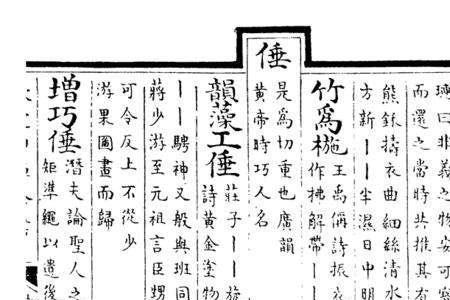 曰非義之物安可
而還之當時共推其有
擣衣曲細絲清水
方新丨丨半濕日中明
竹爲椸王禹偁詩振衣
作拂解帶丨丨
倕
是爲切重也廣韻
黃帝時巧人名
韻藻工倕莊子丨丨旋
詩黃金塗物
丨丨騁神又般與班同
蔣少游至元祖言臣甥
可令反上不從少
游果圖畫而歸
增巧倕潛夫論聖人之
矩準繩以遺後